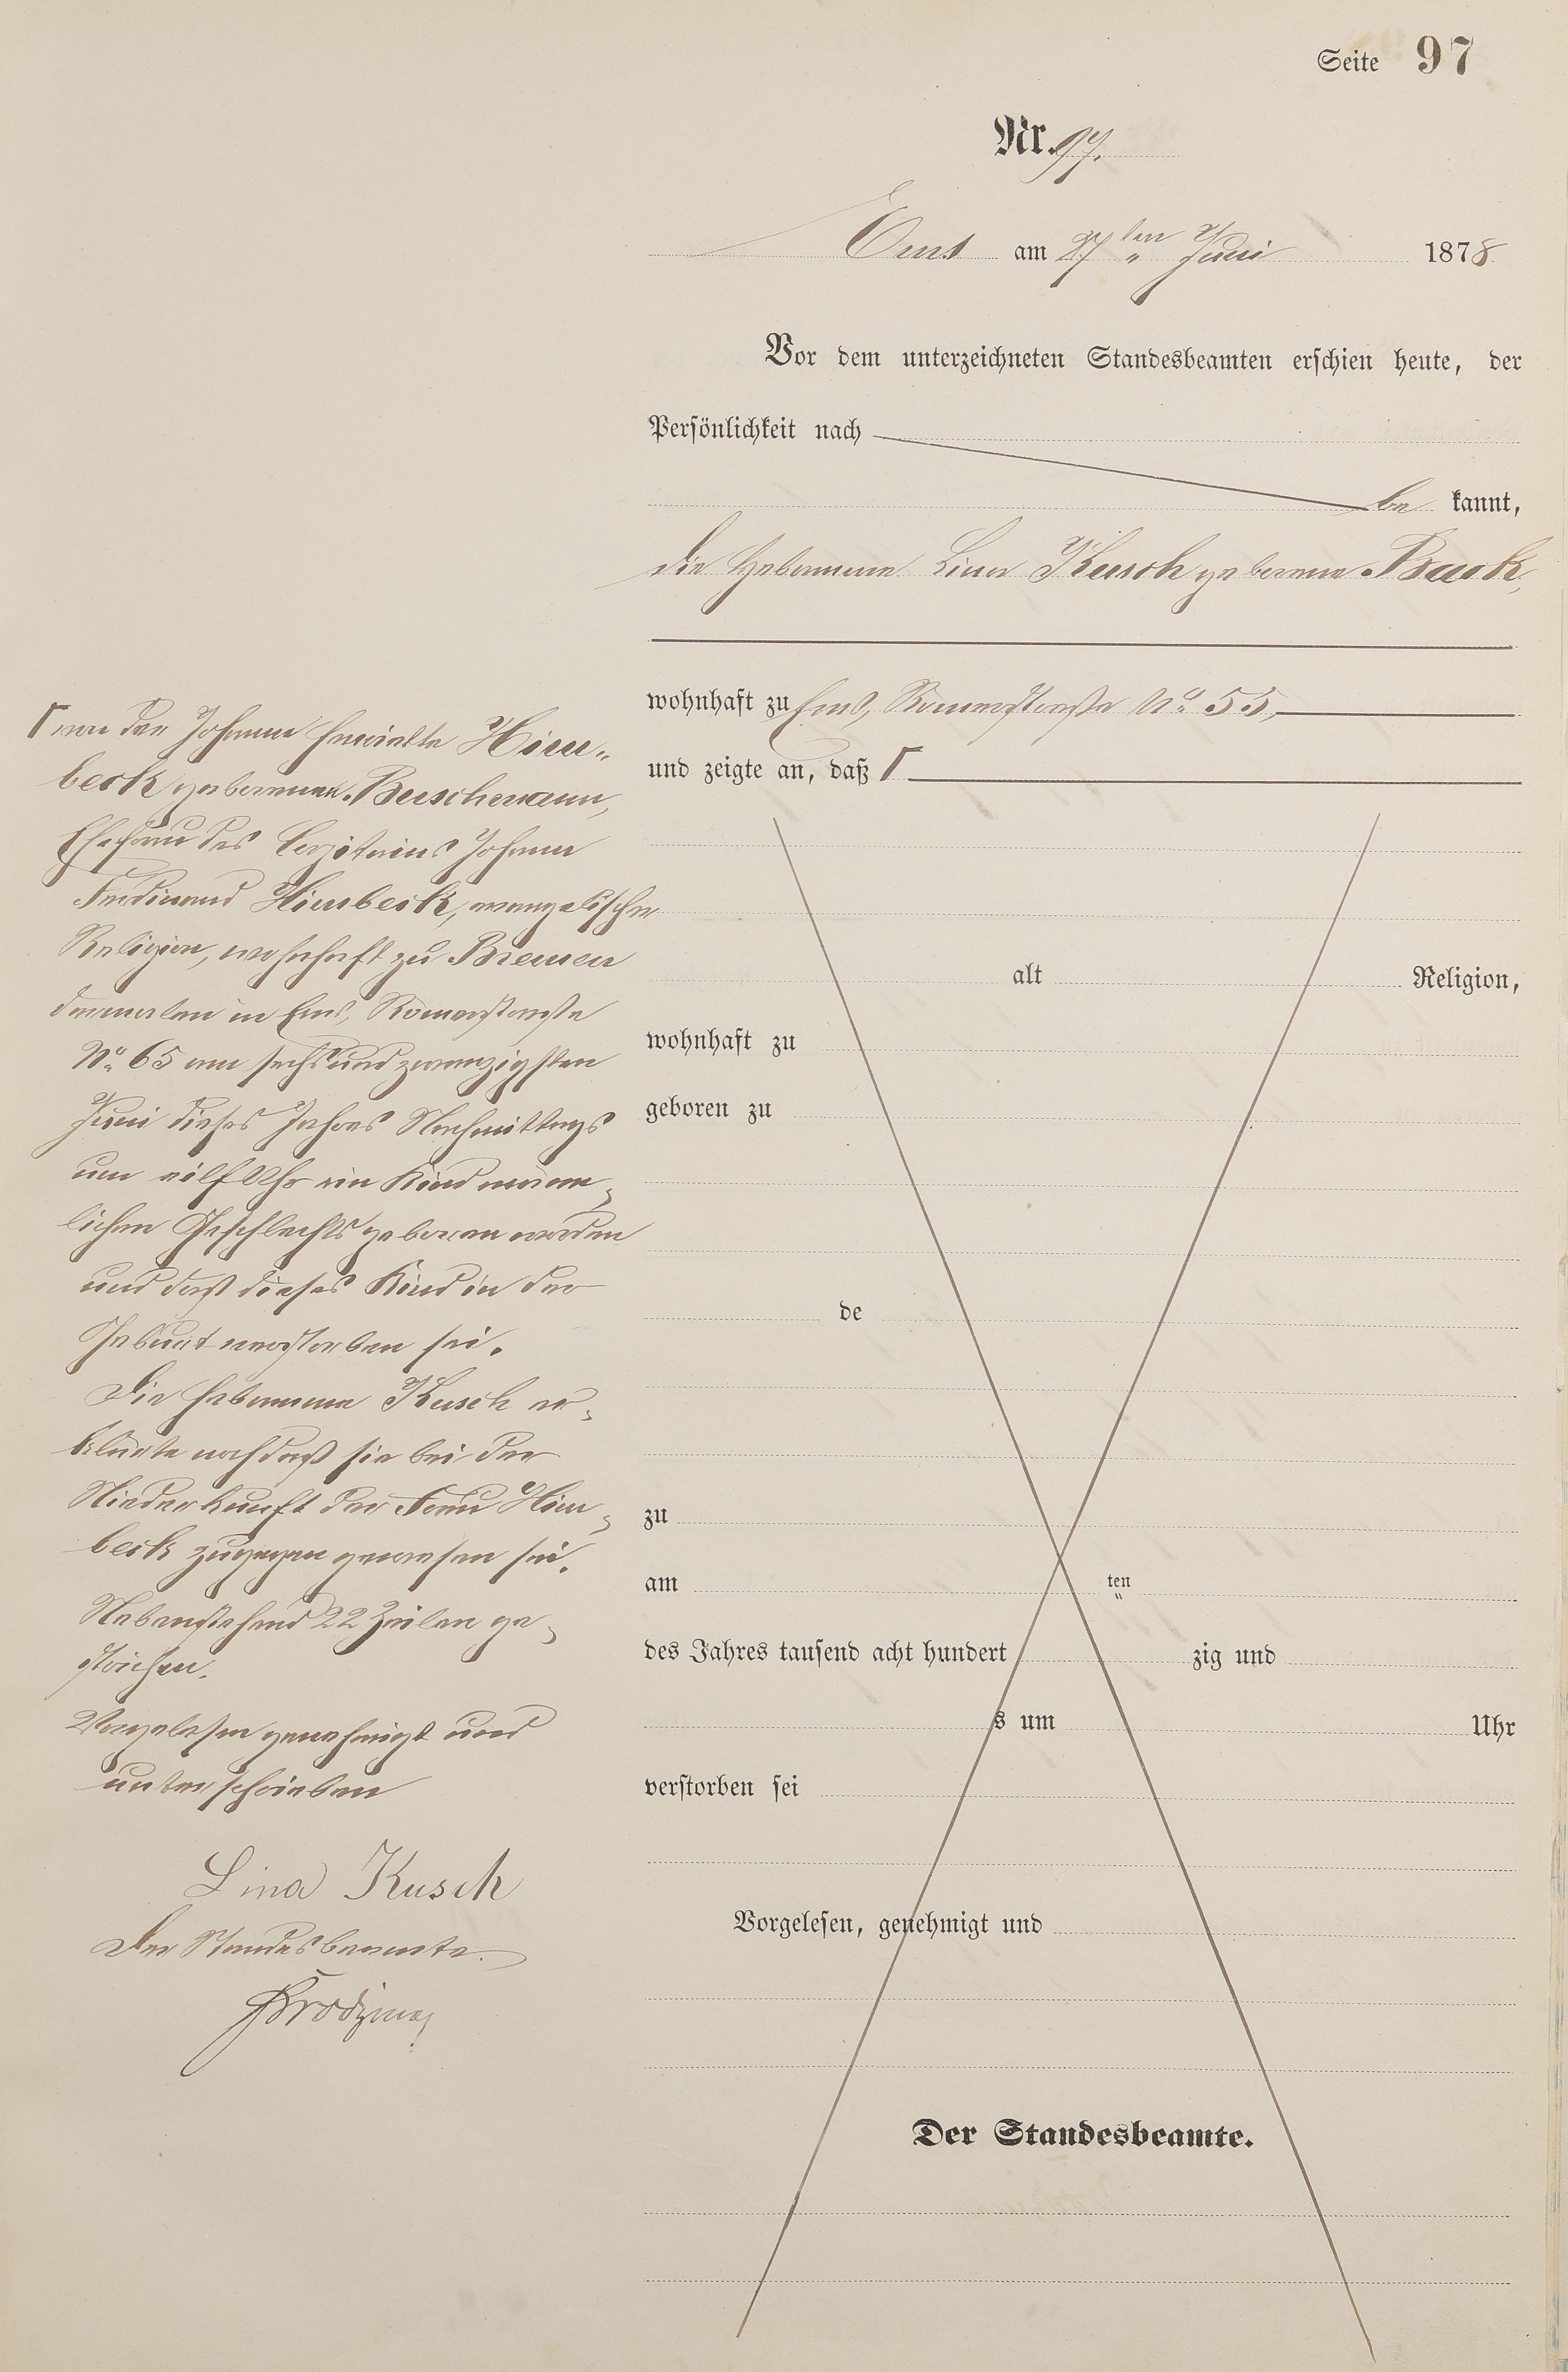 Seite 97
Nr. 97.
Ems am 27ten Juni 1878
Vor dem unterzeichneten Standesbeamten erschien heute, der
Persönlichkeit nach
be kannt,
die Hebamme Lina Kusch geborene Back,
wohnhaft zu Ems, Römerstraße No. 55,
und zeigte an, daß ┌
alt Religion,
wohnhaft zu
geboren zu
de
zu
am ten
des Jahres tausend acht hundert zig und
s um Uhr
verstorben sei
Vorgelesen, genehmigt und
Der Standesbeamte.
┌ von der Johanne Henriette Him-
beck geborenen Buschmann,
Ehefrau des Capitains Johann
Ferdinand Himbeck, evangelischer
Religion, wohnhaft zu Bremen
dermalen in Ems, Römerstraße
No. 65 am sechsundzwanzigsten
Juni dieses Jahres Nachmittags
um eilf Uhr ein Kind männ-
lichen Geschlechts geboren worden
und daß dieses Kind in der
Geburt verstorben sei.
Die Hebamme Kusch er-
klärte noch daß sie bei der
Niederkunft der Frau Him-
beck zugegen gewesen sei.
Nebenstehend 22 Zeilen ge-
strichen.
Vorgelesen genehmigt und
unterschrieben
Lina Kusch
Der Standesbeamte.